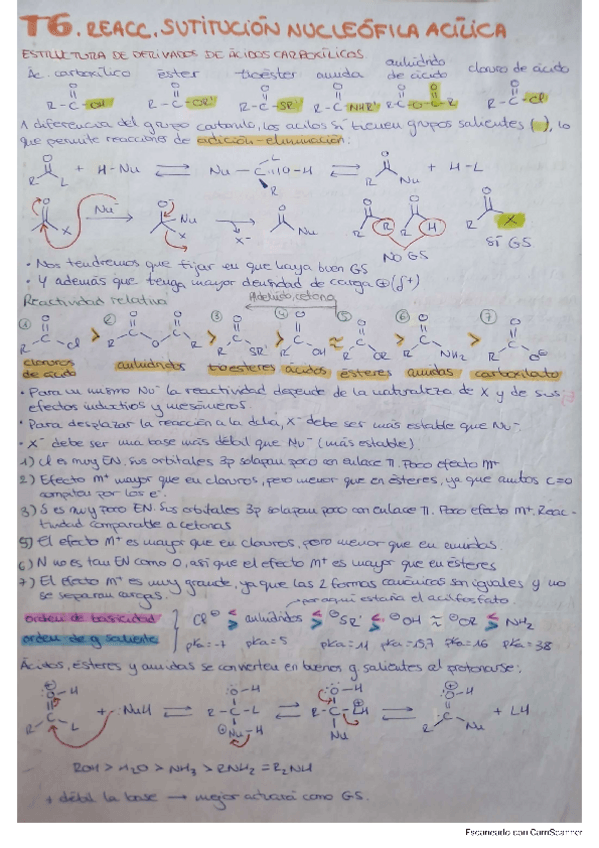 T6. REACC. SUTITUCIÓN NUCLEÓFILA ACÍLICA
ESTRUCTURA DE DERIVADOS DE ÁCIDOS CARBOXÍLICOS
Ác. carboxílico éster tioéster amida anhídrido de ácido cloruro de ácido
R-C-OH R-C-OR' R-C-SR' R-C-NHR' R-C-O-C-R R-C-Cl
A diferencia del grupo carbonilo, los acilos sí tienen grupos salientes ( ), lo
que permite reacciones de adición-eliminación:
R L + H-Nu Nu-C O-H R L R Nu + H-L
R X Nu⁻ R Nu X X⁻ R Nu R R R H R X
NO GS SÍ GS
• Nos tendremos que fijar en que haya buen GS
• Y además que tenga mayor densidad de carga ⊕ (δ⁺)
Reactividad relativa Aldehído, cetona
① ② ③ ④ ⑤ ⑥ ⑦
R Cl > R O R > R SR' > R OH ≈ R OR > R NH₂ > R O⊖
cloruros de ácido anhídridos tioésteres ácidos ésteres amidas carboxilato
• Para un mismo Nu⁻ la reactividad depende de la naturaleza de X y de sus
efectos inductivos y mesómeros.
• Para desplazar la reacción a la dcha, X⁻ debe ser más estable que Nu⁻.
• X⁻ debe ser una base más débil que Nu⁻ (más estable).
1) Cl es muy EN. Sus orbitales 3p solapan poco con enlace π. Poco efecto M⁺
2) Efecto M⁺ mayor que en cloruros, pero menor que en ésteres, ya que ambos C=O
compiten por los e⁻.
3) S es muy poco EN. Sus orbitales 3p solapan poco con enlace π. Poco efecto M⁺. Reac-
tividad comparable a cetonas
5) El efecto M⁺ es mayor que en cloruros, pero menor que en amidas.
6) N no es tan EN como O, así que el efecto M⁺ es mayor que en ésteres
7) El efecto M⁺ es muy grande, ya que las 2 formas canónicas son iguales y no
se separan cargas.
por aquí estaría el acilfosfato.
orden de basicidad
orden de g saliente
Cl⊖ < > anhídridos < > ⊖SR' < > ⊖OH ≈ ⊖OR < > NH₂
pKa=-7 pKa=5 pKa=11 pKa=15,7 pKa=16 pKa=38
Ácidos, ésteres y amidas se convierten en buenos g salientes al protonarse:
R L + :NuH R-C-L R-C-LH R Nu + LH
ROH > H₂O > NH₃ > RNH₂ = R₂NH
+ débil la base → mejor actuará como GS.
Escaneado con CamScanner